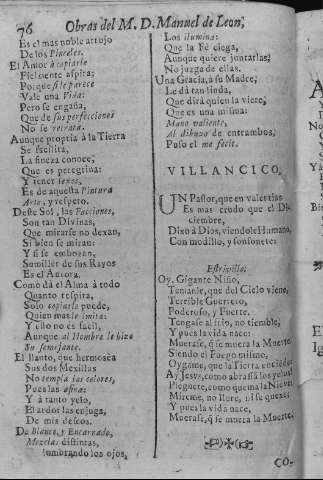 76 Obras del M. D. Manuel de Leon,
Es el mas noble arrojo
De los Pinceles.
El Amor à copiarle
Fielmente aspira;
Porque si le parece
Vale una Vida:
Pero se engaña,
Que de sus perfecciones
No se retrata.
Aunque propria à la Tierra
Se facilita,
La fineza conoce,
Que es peregrina:
Y tener lexos,
Es de aquesta Pintura
Arte, y respeto.
Deste Sol, las Facciones,
Son tan Divinas,
Que mirarse no dexan,
Si bien se miran:
Y si se embozan,
Sumiller de sus Rayos
Es el Aurora.
Como dà el Alma à todo
Quanto respira,
Solo copiarle puede,
Quien mas le imita:
Y esto no es facil,
Aunque al Hombre le hizo
Su semejante.
El llanto, que hermosea
Sus dos Mexillas
No templa las colores,
Pues las afina:
Y à tanto yelo,
El ardor las enjuga,
De mis deseos.
De Blanco, y Encarnado,
Mezclas distintas,
sombreando los ojos,
Los ilumina:
Que la Fè ciega,
Aunque quiere juntarlas,
No juzga de ellas.
Una Gracia, à su Madre,
Le dà tan linda,
Que dirà quien la viere,
Que es una misma:
Mano valiente,
Al dibuxo de entrambos,
Puso el me fecit.
VILLANCICO.
UN Pastor, que en valentias
Es mas crudo que el Diciembre,
Dixo à Dios, viendole Humano,
Con modillo, y sonsonete:
Estrivillo.
Oy, Gigante Niño,
Temanle, que del Cielo viene,
Terrible Guerrero,
Poderoso, y Fuerte.
Tengase al frio, no tiemble,
Y pues la vida nace:
Muerase, q̃ se muera la Muerte.
Siendo el Fuego mismo,
Oygame, que la Tierra
Ay Jesus, como abrasa los yelos!
Pleguete, como quema la Nieve!
Mireme, no llore, ni se quexe:
Y pues la vida nace,
Muerase, q̃ se muera la Muerte.
CO-